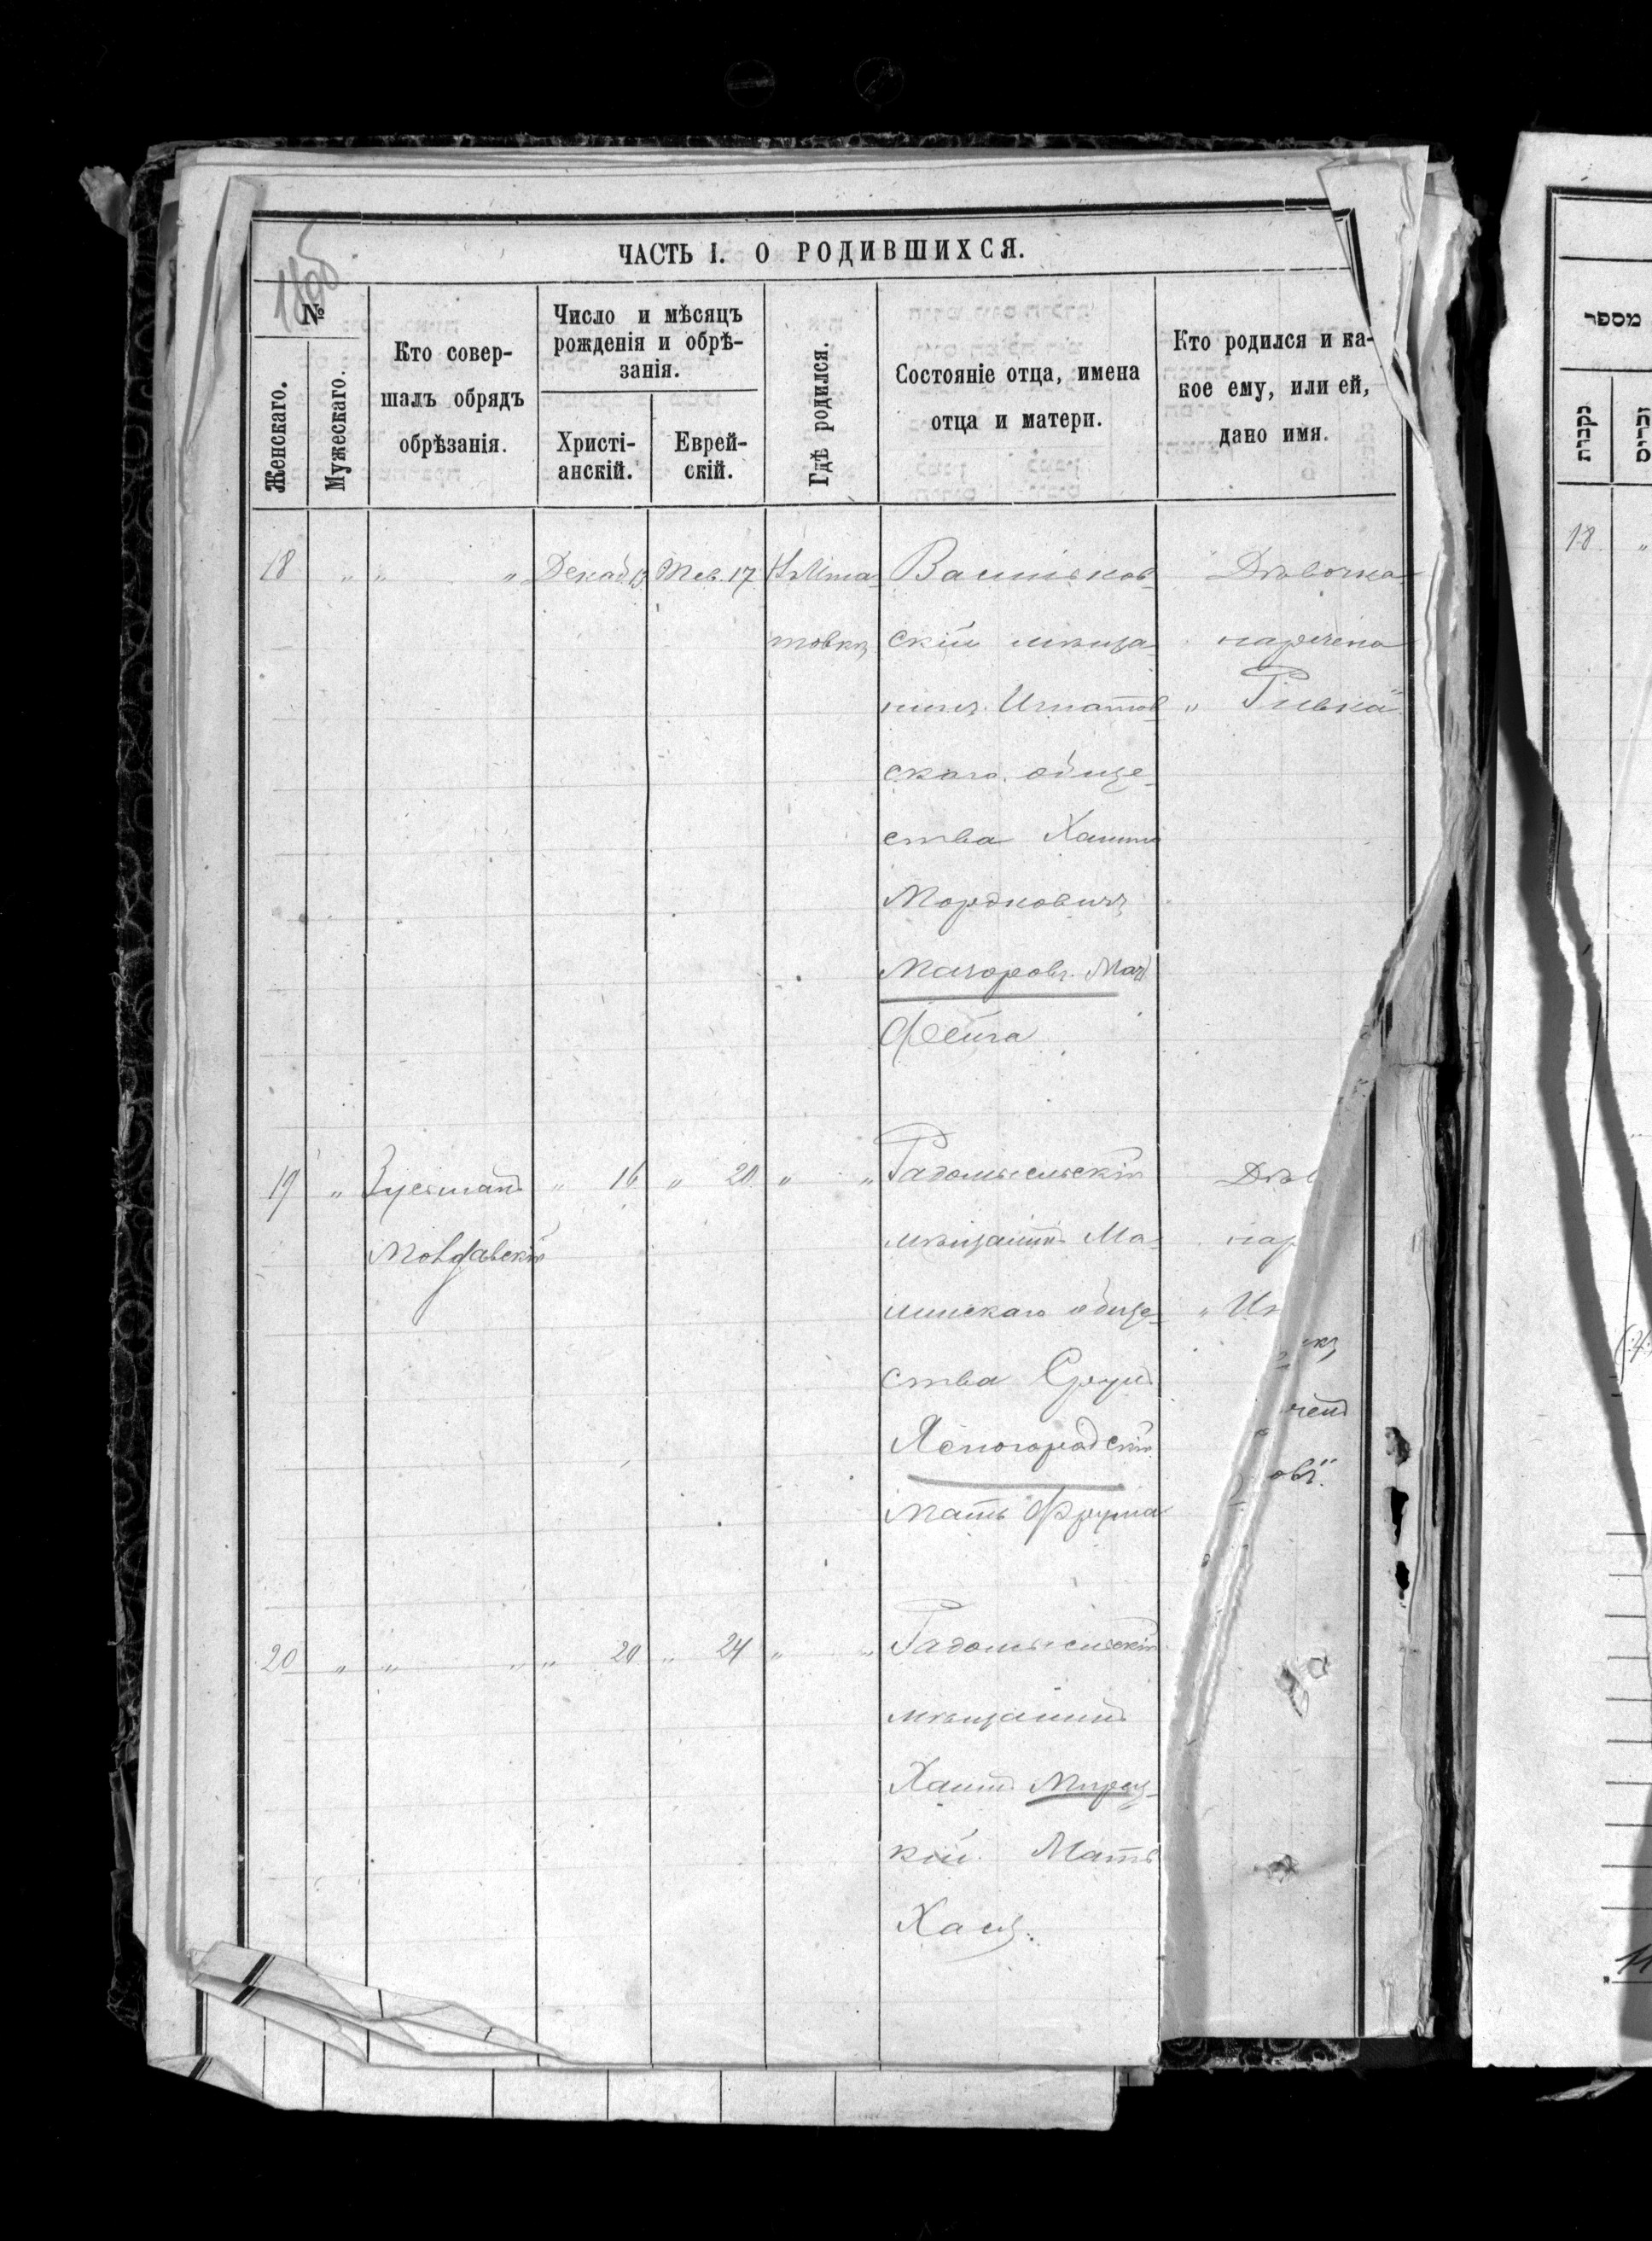 1105
ЧАСТЬ I. О РОДИВШИХСЯ.
№
Женскаго.
Мужескаго.
Кто совер-
шалъ обрядъ
обрѣзанія.
Число и мѣсяцъ
рожденія и обрѣ-
занія.
Христі-
анскій.
Еврей-
скій.
Гдѣ родился.
Состояніе отца, имена
отца и матери.
Кто родился и ка-
кое ему, или ей,
дано имя.
18 " " " Декаб 13 Тев. 17
товкѣ
Васильков-
скій мѣща-
нинъ Игнатов-
скаго обще-
ства Хаимъ
Мордковичъ
Магоровъ. Мать
Фейга
Дѣвочка
наречена
" Ривка"
19 " Зусьманъ " 16 " 20 " "
Радомысльскій
мѣщанинъ Ма-
линскаго обще-
ства Сруль
Ясногородскій
Мать Фрума
Дѣв
нар
" И
чен
овъ".
20 " " " " 20 " 24 " "
Радомысльскій
мѣщанинъ
Хаимъ Мирец-
кій. Мать
Хася.
מספר
נקבות
זכרים
18 "